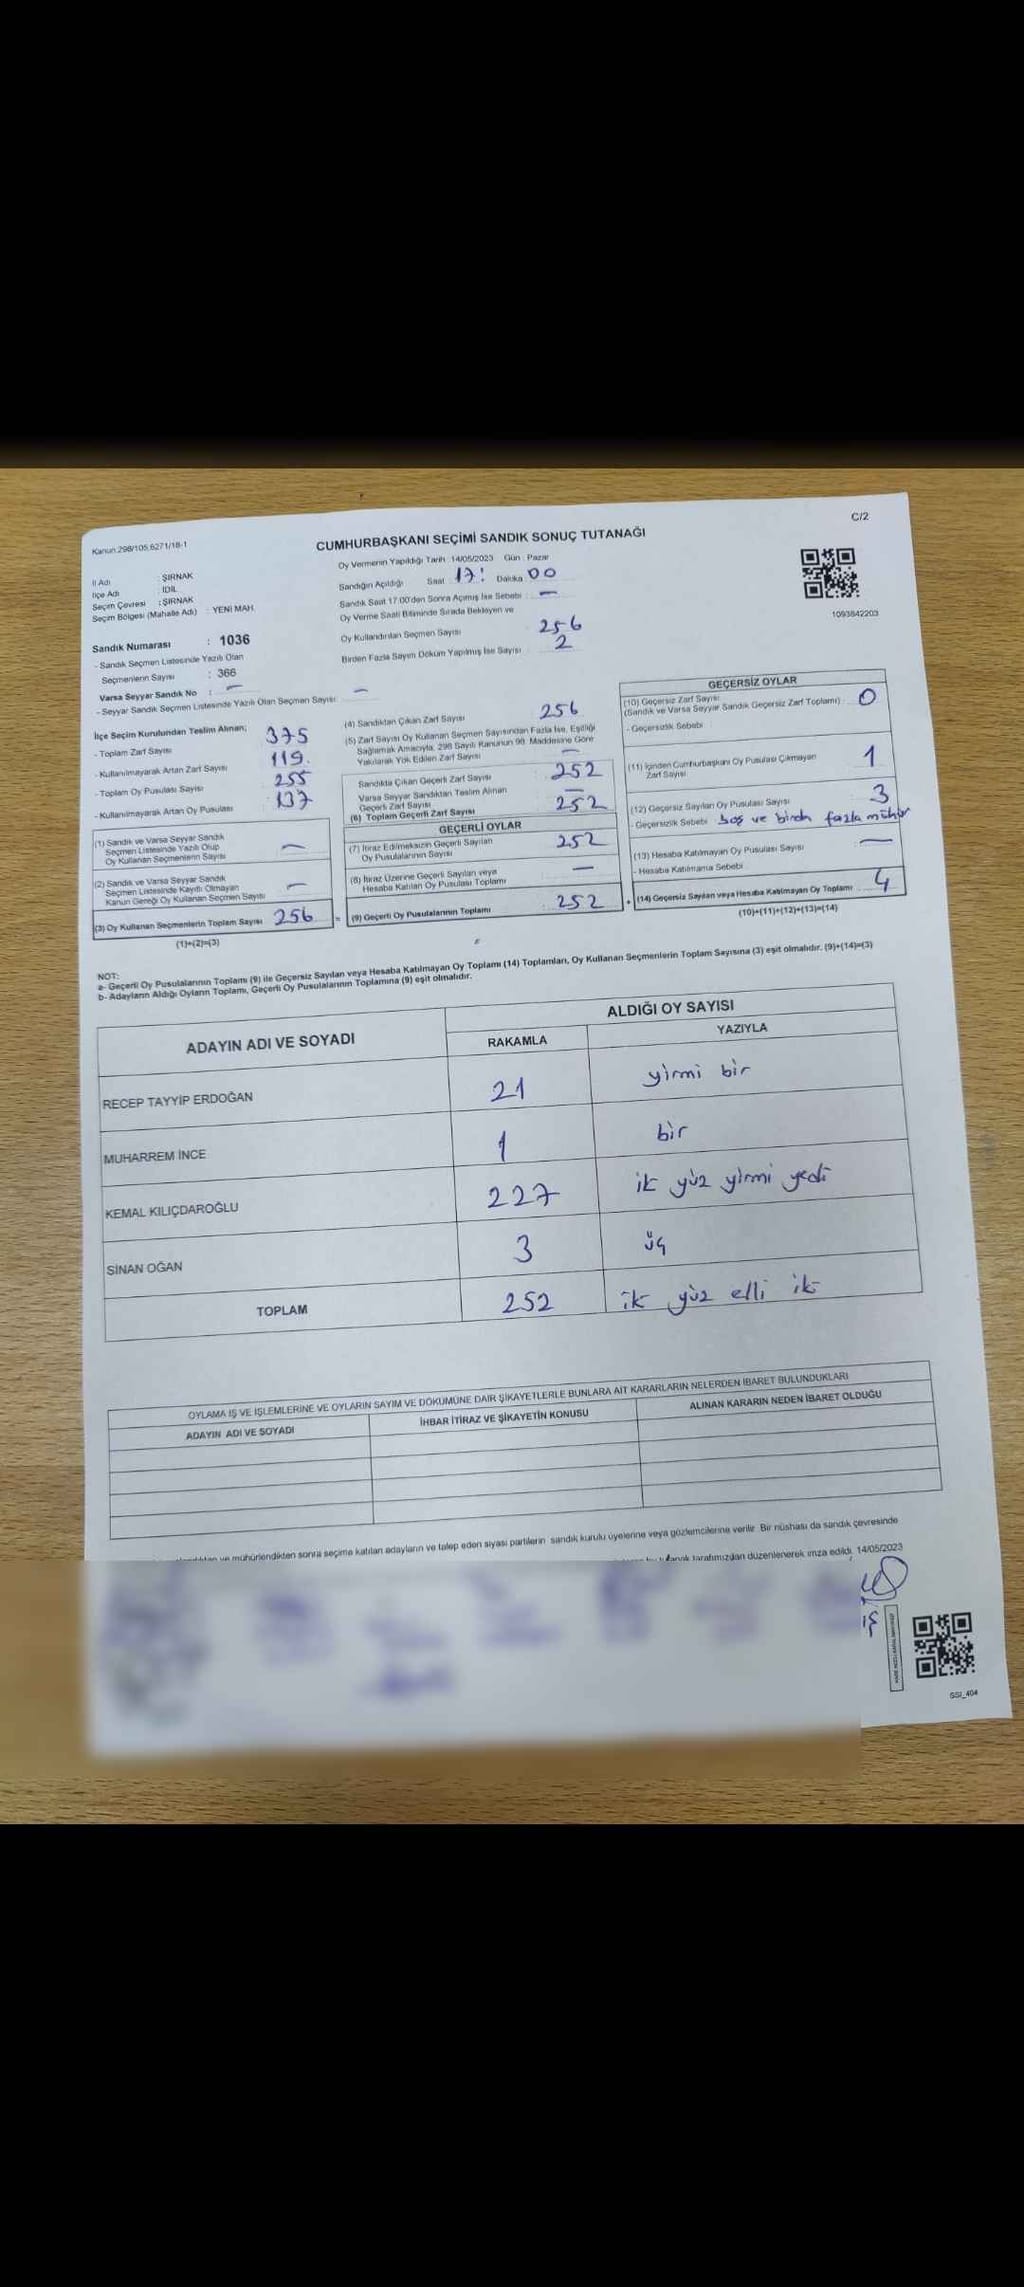 C/2
Kanun:298/105,6271/18-1
CUMHURBAŞKANI SEÇİMİ SANDIK SONUÇ TUTANAĞI
Oy Vermenin Yapıldığı Tarih : 14/05/2023 Gün : Pazar
İl Adı : ŞIRNAK
İlçe Adı : İDİL
Seçim Çevresi : ŞIRNAK
Seçim Bölgesi (Mahalle Adı) : YENİ MAH.
Sandığın Açıldığı Saat 17: Dakika 00
Sandık Saat 17:00'den Sonra Açılmış İse Sebebi : —
Oy Verme Saati Bitiminde Sırada Bekleyen ve
Oy Kullandırılan Seçmen Sayısı 256
Birden Fazla Sayım Döküm Yapılmış İse Sayısı : 2
1093842203
Sandık Numarası : 1036
- Sandık Seçmen Listesinde Yazılı Olan
Seçmenlerin Sayısı : 366
Varsa Seyyar Sandık No : —
- Seyyar Sandık Seçmen Listesinde Yazılı Olan Seçmen Sayısı: —
İlçe Seçim Kurulundan Teslim Alınan;
- Toplam Zarf Sayısı 375
- Kullanılmayarak Artan Zarf Sayısı 119.
- Toplam Oy Pusulası Sayısı 255
- Kullanılmayarak Artan Oy Pusulası 137
(1) Sandık ve Varsa Seyyar Sandık
Seçmen Listesinde Yazılı Olup
Oy Kullanan Seçmenlerin Sayısı —
(2) Sandık ve Varsa Seyyar Sandık
Seçmen Listesinde Kayıtlı Olmayan
Kanun Gereği Oy Kullanan Seçmen Sayısı —
(3) Oy Kullanan Seçmenlerin Toplam Sayısı 256
(1)+(2)=(3)
(4) Sandıktan Çıkan Zarf Sayısı 256
(5) Zarf Sayısı Oy Kullanan Seçmen Sayısından Fazla İse, Eşitliği
Sağlamak Amacıyla, 298 Sayılı Kanunun 98. Maddesine Göre
Yakılarak Yok Edilen Zarf Sayısı —
Sandıkta Çıkan Geçerli Zarf Sayısı : 252
Varsa Seyyar Sandıktan Teslim Alınan
Geçerli Zarf Sayısı —
(6) Toplam Geçerli Zarf Sayısı : 252
GEÇERLİ OYLAR
(7) İtiraz Edilmeksizin Geçerli Sayılan
Oy Pusulalarının Sayısı : 252
(8) İtiraz Üzerine Geçerli Sayılan veya
Hesaba Katılan Oy Pusulası Toplamı : —
= (9) Geçerli Oy Pusulalarının Toplamı : 252
GEÇERSİZ OYLAR
(10) Geçersiz Zarf Sayısı
(Sandık ve Varsa Seyyar Sandık Geçersiz Zarf Toplamı) : 0
- Geçersizlik Sebebi :
(11) İçinden Cumhurbaşkanı Oy Pusulası Çıkmayan
Zarf Sayısı 1
(12) Geçersiz Sayılan Oy Pusulası Sayısı 3
- Geçersizlik Sebebi : boş ve birden fazla mühür
(13) Hesaba Katılmayan Oy Pusulası Sayısı —
- Hesaba Katılmama Sebebi :
+ (14) Geçersiz Sayılan veya Hesaba Katılmayan Oy Toplamı : 4
(10)+(11)+(12)+(13)=(14)
NOT:
a- Geçerli Oy Pusulalarının Toplamı (9) ile Geçersiz Sayılan veya Hesaba Katılmayan Oy Toplamı (14) Toplamları, Oy Kullanan Seçmenlerin Toplam Sayısına (3) eşit olmalıdır. (9)+(14)=(3)
b- Adayların Aldığı Oyların Toplamı, Geçerli Oy Pusulalarının Toplamına (9) eşit olmalıdır.
ADAYIN ADI VE SOYADI
ALDIĞI OY SAYISI
RAKAMLA YAZIYLA
RECEP TAYYİP ERDOĞAN 21 yirmi bir
MUHARREM İNCE 1 bir
KEMAL KILIÇDAROĞLU 227 iki yüz yirmi yedi
SİNAN OĞAN 3 üç
TOPLAM 252 iki yüz elli iki
OYLAMA İŞ VE İŞLEMLERİNE VE OYLARIN SAYIM VE DÖKÜMÜNE DAİR ŞİKAYETLERLE BUNLARA AİT KARARLARIN NELERDEN İBARET BULUNDUKLARI
ADAYIN ADI VE SOYADI İHBAR İTİRAZ VE ŞİKAYETİN KONUSU ALINAN KARARIN NEDEN İBARET OLDUĞU
ve mühürlendikten sonra seçime katılan adayların ve talep eden siyasi partilerin sandık kurulu üyelerine veya gözlemcilerine verilir. Bir nüshası da sandık çevresinde
tarafımızdan düzenlenerek imza edildi. 14/05/2023
SSI_404